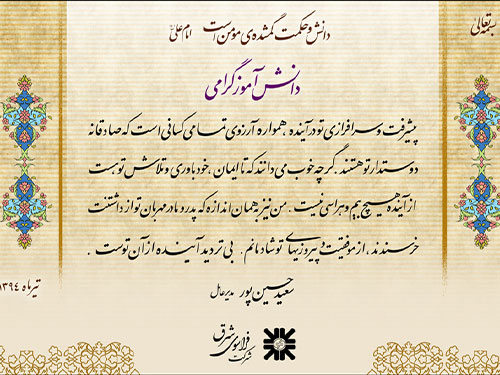 بسمه تعالی
دانش و حکمت گمشده‌ی مؤمن است امام علی(ع)
دانش آموز گرامی
پیشرفت و سرافرازی تو در آینده ، همواره آرزوی تمامی کسانی است که صادقانه
دوستدار تو هستند . گرچه خوب می‌دانند که تا ایمان ، خودباوری و تلاش توست
از آینده هیچ بیم و هراسی نیست . من نیز به همان اندازه که پدر و مادر مهربان تو از داشتنت
خرسندند ، از موفقیت و پیروزیهای تو شادمانم . بی تردید آینده از آن توست .
سعید حسین پور مدیرعامل
تیرماه ۱۳۹۴
شرکت فراسوی شرق